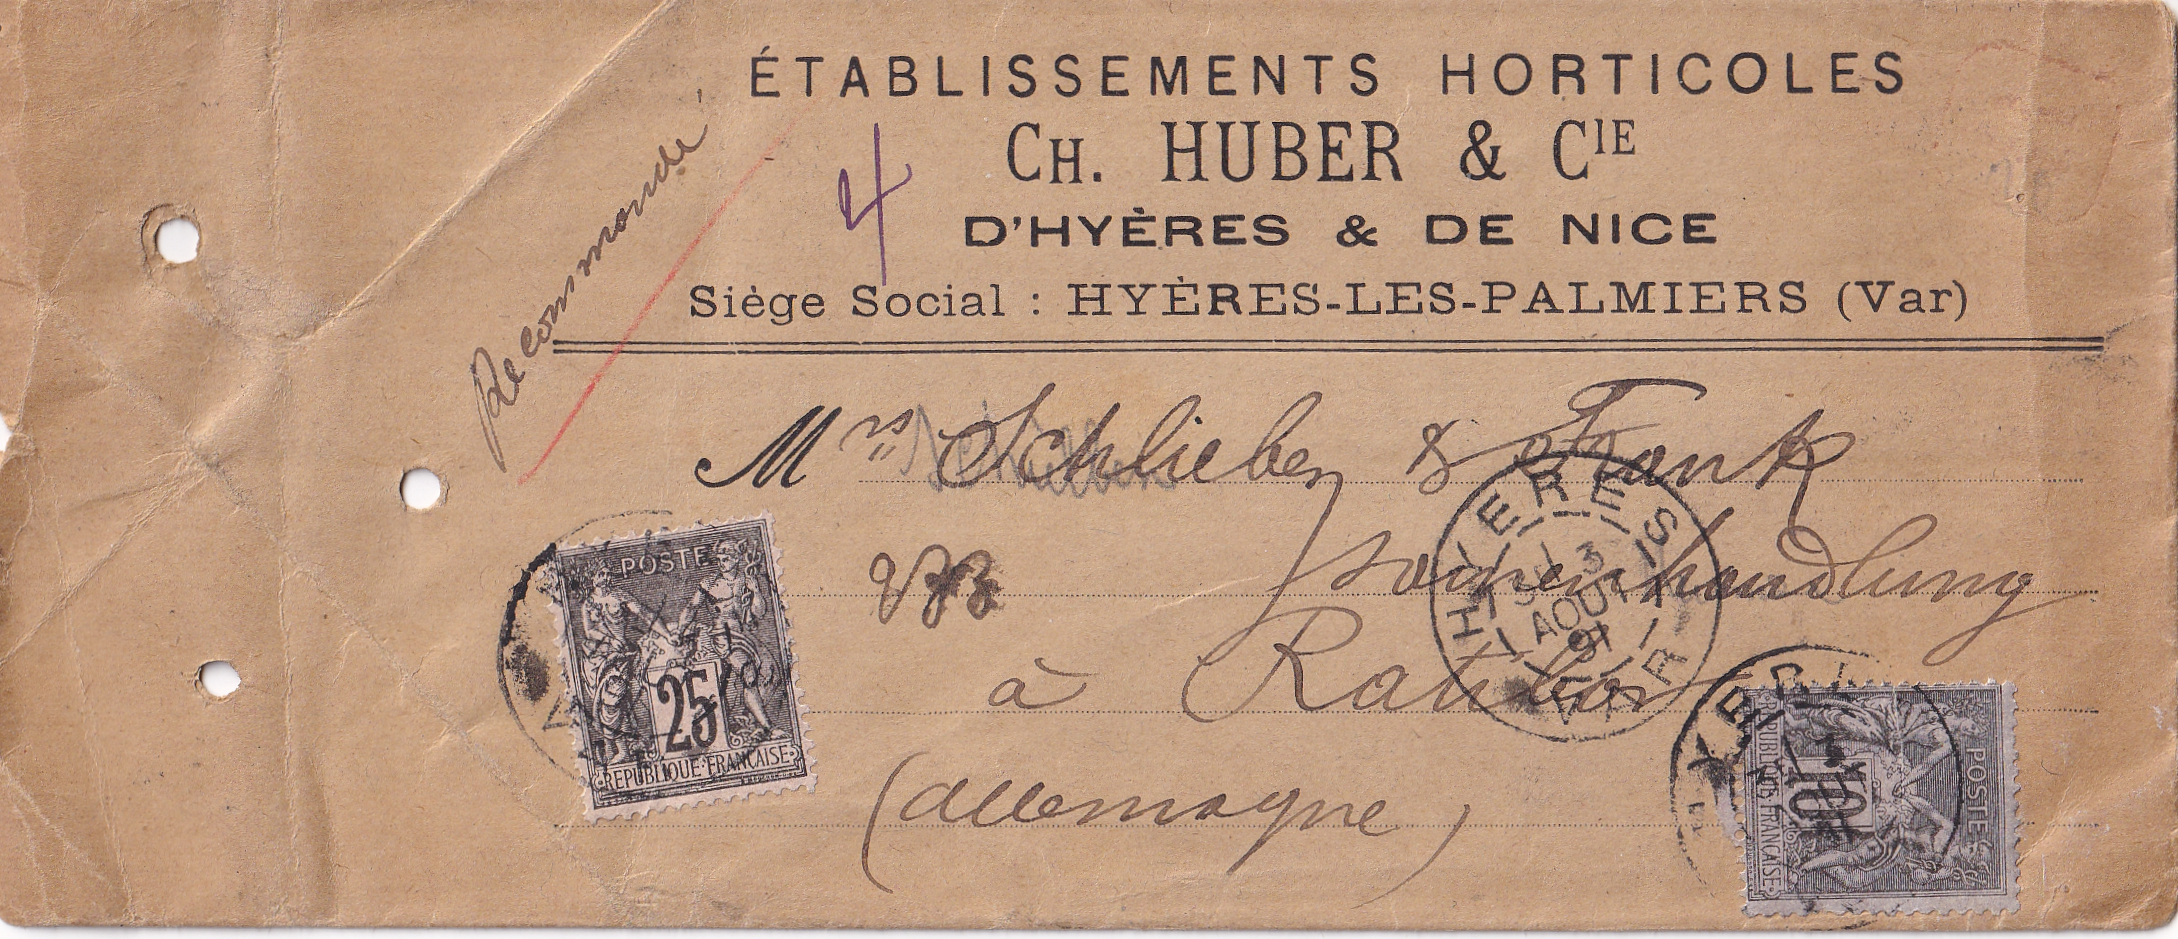 ÉTABLISSEMENTS HORTICOLES
CH. HUBER & CIE
D'HYÈRES & DE NICE
Siège Social : HYÈRES-LES-PALMIERS (Var)
Recommandé
4
Mrs Schlieben & Frank
Samenhandlung
à Ratibor
(Allemagne)
POSTE
25
REPUBLIQUE FRANÇAISE
HYERES
3
AOUT
91
VAR
POSTE
10
REPUBLIQUE FRANÇAISE